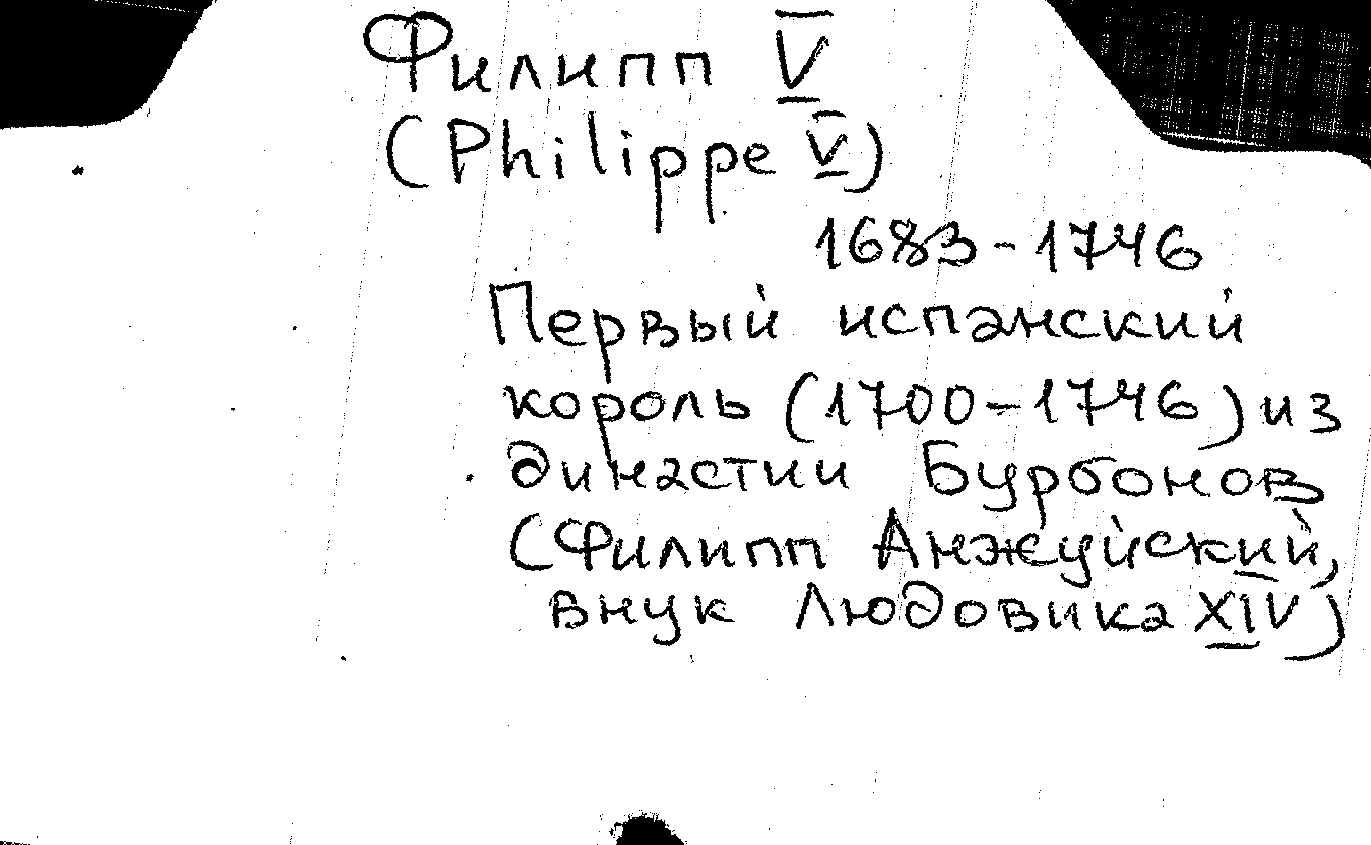 Филипп V
(Philippe V)
1683-1746
Первый испанский
король (1700-1746) из
династии Бурбонов
(Филипп Анжуйский,
внук Людовика XIV)